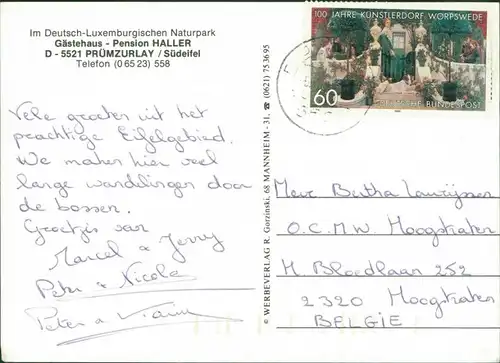 Im Deutsch-Luxemburgischen Naturpark
Gästehaus - Pension HALLER
D - 5521 PRÜMZURLAY / Südeifel
Telefon (0 65 23) 558
Vele groeten uit het
prachtige Eifelgebied.
We maken hier veel
lange wandelingen door
de bossen.
Groetjes van
Marcel + Jenny
Peter + Nicola
Peter +
© WERBEVERLAG R. Gorzinski, 68 MANNHEIM - 31, ☎ (0621) 75 36 95
100 JAHRE KÜNSTLERDORF WORPSWEDE
60
DEUTSCHE BUNDESPOST
Mevr Bertha
O.C.M.W Hoogstraten
H Bloedlaan 252
2320 Hoogstraten
BELGIE